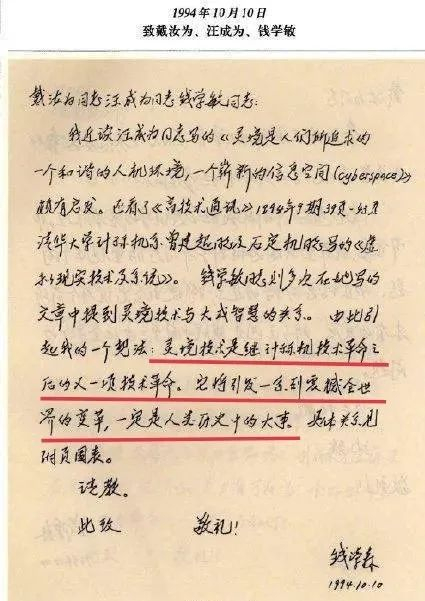 1994年10月10日
致戴汝为、汪成为、钱学敏
戴汝为同志汪成为同志钱学敏同志:
我近读汪成为同志写的《灵境是人们所追求的
一个和谐的人机环境,一个崭新的信息空间(cyberspace)》
颇有启发。已看了《高技术通讯》1994年9期39页-43页
清华大学计算机系曾建超、石定机写的《虚
拟现实技术及系统》。钱学敏则多次在她写的
文章中提到灵境技术与大成智慧的关系。由此引
起我的一个想法:灵境技术是继计算机技术革命之
后的又一项技术革命。它将引发一系列震撼全世
界的变革,一定是人类历史中的大事。具体关系见
附页图表。
请教。
此致 敬礼!
钱学森
1994.10.10